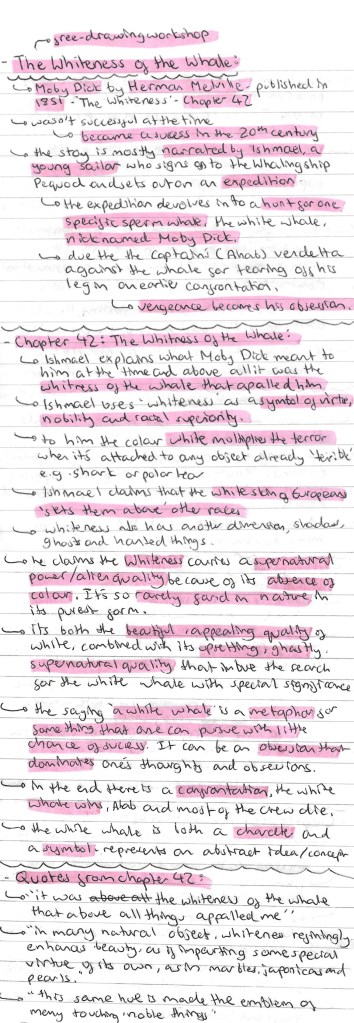 ↳ free-drawing workshop
- The Whiteness of the Whale:
↳ Moby Dick by Herman Melville - published in
1851 - 'The Whiteness' - Chapter 42
↳ wasn't successful at the time
↳ became a sucess in the 20th century
↳ the stoy is mostly narrated by Ishmael, a
young sailor who signs onto the whaling ship
Pequod and sets out on an expedition.
↳ the expedition devolves into a hunt for one
specific sperm whale, the white whale,
nicknamed Moby Dick.
↳ due the the Captains (Ahab) vendetta
against the whale for tearing off his
leg in an earlier confrontation.
↳ vengeance becomes his obsesion.
- Chapter 42: The Whitness of the Whale:
↳ Ishmael explains what Moby Dick meant to
him at the time and above all it was the
whitness of the whale that apalled him
↳ Ishmael uses 'whiteness' as a symbol of virtue,
nobility and racial supriority.
↳ to him the colour white moltiplies the terror
when it's attached to any object already 'terible'
e.g. shark or polar bear
↳ Ishmael claims that the white skin of Europeans
'sets them above' other races
↳ whiteness also has another dimension, shadow,
ghosts and hanted things.
↳ he claims the whiteness carries a supernatural
power/alien quality because of its absence of
colour. It's so rarely found in nature in
its purest form.
↳ its both the beautiful, appealing quality of
white, combined with its upsetting, ghastly,
supernatural quality that imbue the search
for the white whale with special significance
↳ the saying 'a white whale' is a metaphor for
something that one can pursue with little
chance of sucess. It can be an obsesion that
dominates one's thoughts and obsesions.
↳ in the end there is a confrontation, the white
whale wins, Ahab and most of the crew die.
↳ the while whale is both a charcte and
a symbol - represents an abstract idea/concept
- Quotes from chapter 42:
↳ "it was above all the whitenes of the whale
that above all things appalled me"
↳ "in many natural object, whitenes refiningly
enhances beauty, as if imparting some special
virtue of its own, as in marbles, japonicas and
pearls.
↳ "this same hue is made the emblem of
many touching, noble things"